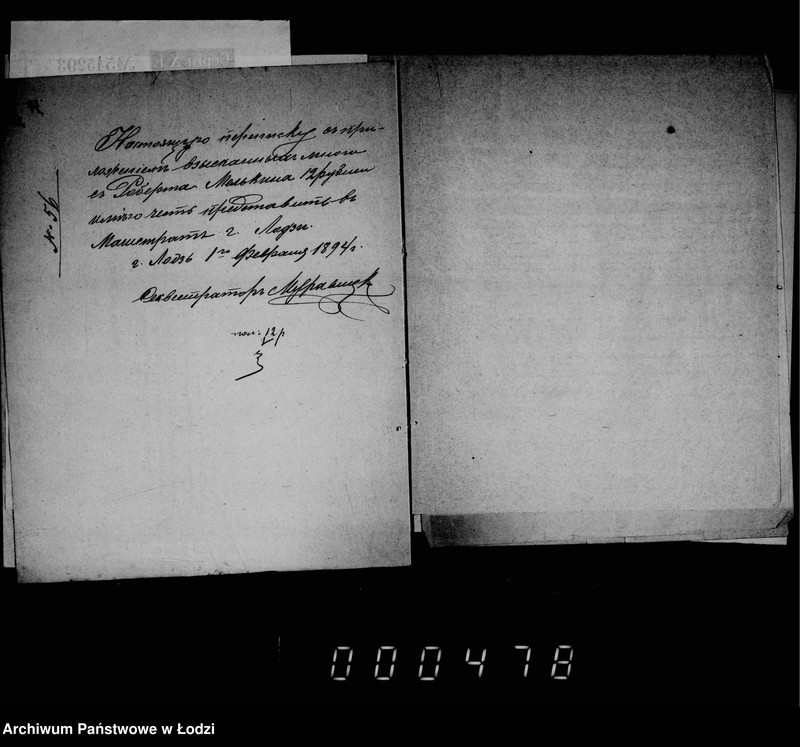 № 56
Настоящую переписку съ при-
ложеніемъ взысканныхъ мною
съ Роберта Мелькина 12 рублей
имѣю честь представить въ
Магистратъ г. Лодзи.
г. Лодзь 1го Февраля 1894 г.
Секвестраторъ
пол: 12 р
000478
Archiwum Państwowe w Łodzi